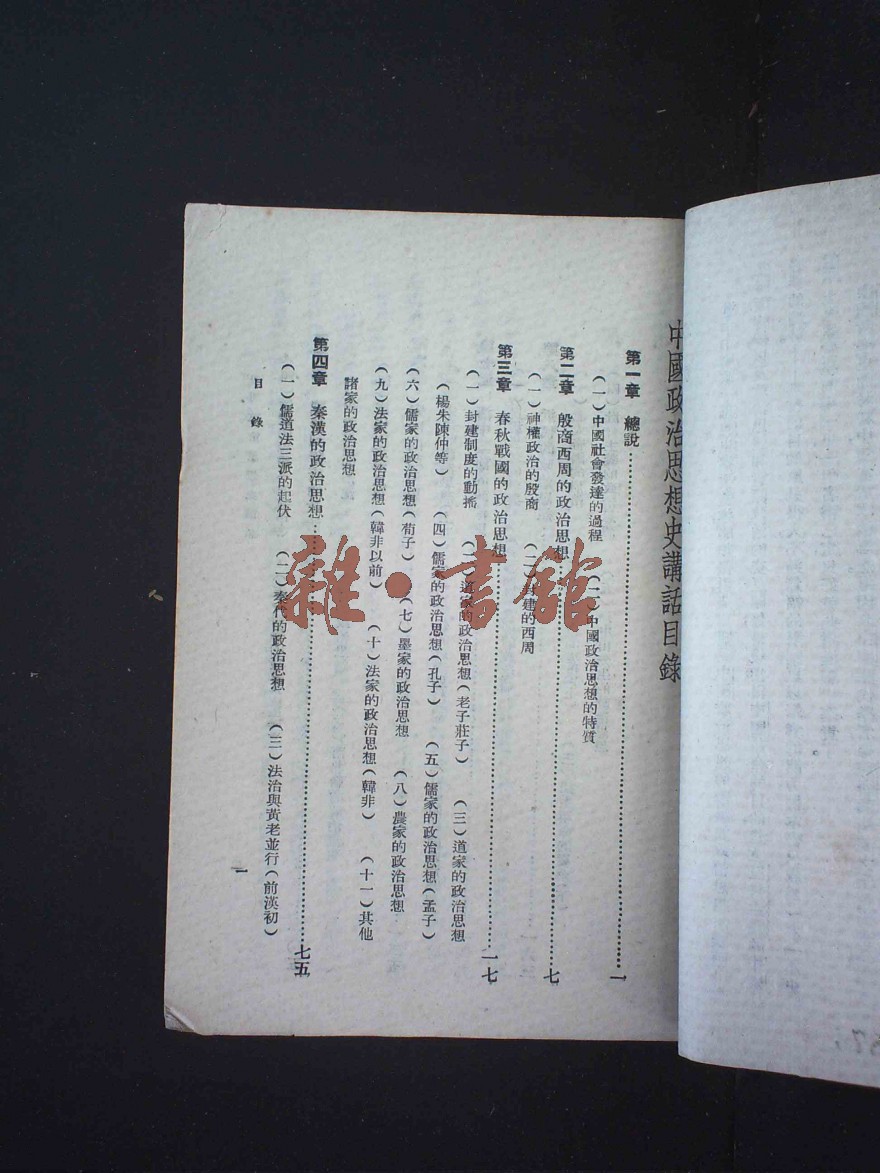 中國政治思想史講話目錄
第一章 總說……一
(一)中國社會發達的過程 (二)中國政治思想的特質
第二章 殷商西周的政治思想……七
(一)神權政治的殷商 (二)封建的西周
第三章 春秋戰國的政治思想……一七
(一)封建制度的動搖 (二)道家的政治思想(老子莊子) (三)道家的政治思想
(楊朱陳仲等) (四)儒家的政治思想(孔子) (五)儒家的政治思想(孟子)
(六)儒家的政治思想(荀子) (七)墨家的政治思想 (八)農家的政治思想
(九)法家的政治思想(韓非以前) (十)法家的政治思想(韓非) (十一)其他
諸家的政治思想
第四章 秦漢的政治思想……七五
(一)儒道法三派的起伏 (二)秦代的政治思想 (三)法治與黃老並行(前漢初)
目錄
一
雜·書館